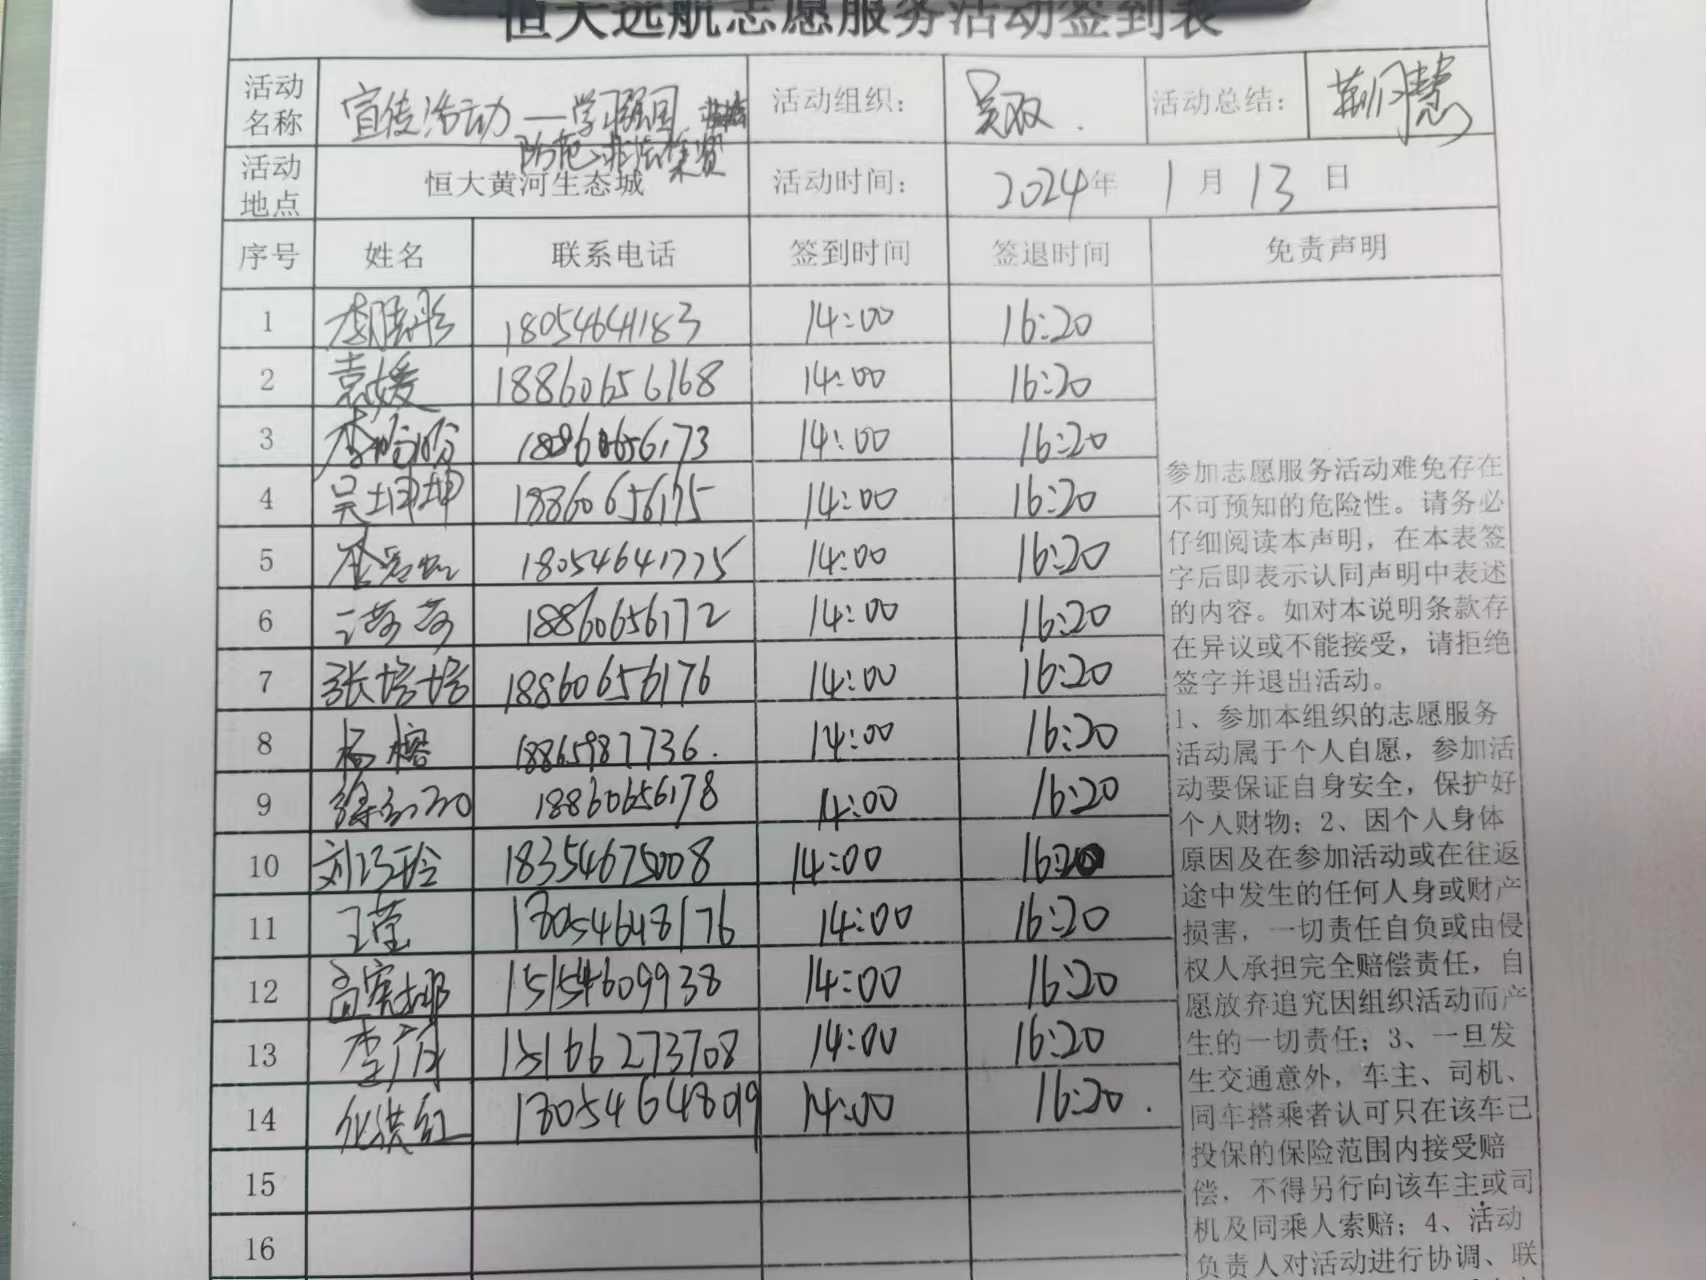 恒大远航志愿服务活动签到表
活动名称 宣传活动—学习强国 活动组织： 吴双. 活动总结：
防范非法集资
活动地点 恒大黄河生态城 活动时间： 2024年 1月13日
序号 姓名 联系电话 签到时间 签退时间 免责声明
1 18054641183 14:00 16:20
2 袁媛 18860656168 14:00 16:20
3 李盼盼 18860656173 14:00 16:20
4 吴坤坤 18860656175 14:00 16:20
5 18054641775 14:00 16:20
6 18860656172 14:00 16:20
7 张培培 18860656176 14:00 16:20
8 杨榕 18865987736. 14:00 16:20
9 18860656178 14:00 16:20
10 刘巧玲 18354675008 14:00 16:20
11 王莹 18054648176 14:00 16:20
12 15154609938 14:00 16:20
13 15166273708 14:00 16:20
14 18054648019 14:00 16:20.
15
16
参加志愿服务活动难免存在
不可预知的危险性。请务必
仔细阅读本声明，在本表签
字后即表示认同声明中表述
的内容。如对本说明条款存
在异议或不能接受，请拒绝
签字并退出活动。
1、参加本组织的志愿服务
活动属于个人自愿，参加活
动要保证自身安全，保护好
个人财物；2、因个人身体
原因及在参加活动或在往返
途中发生的任何人身或财产
损害，一切责任自负或由侵
权人承担完全赔偿责任，自
愿放弃追究因组织活动而产
生的一切责任；3、一旦发
生交通意外，车主、司机、
同车搭乘者认可只在该车已
投保的保险范围内接受赔
偿，不得另行向该车主或司
机及同乘人索赔；4、活动
负责人对活动进行协调、联